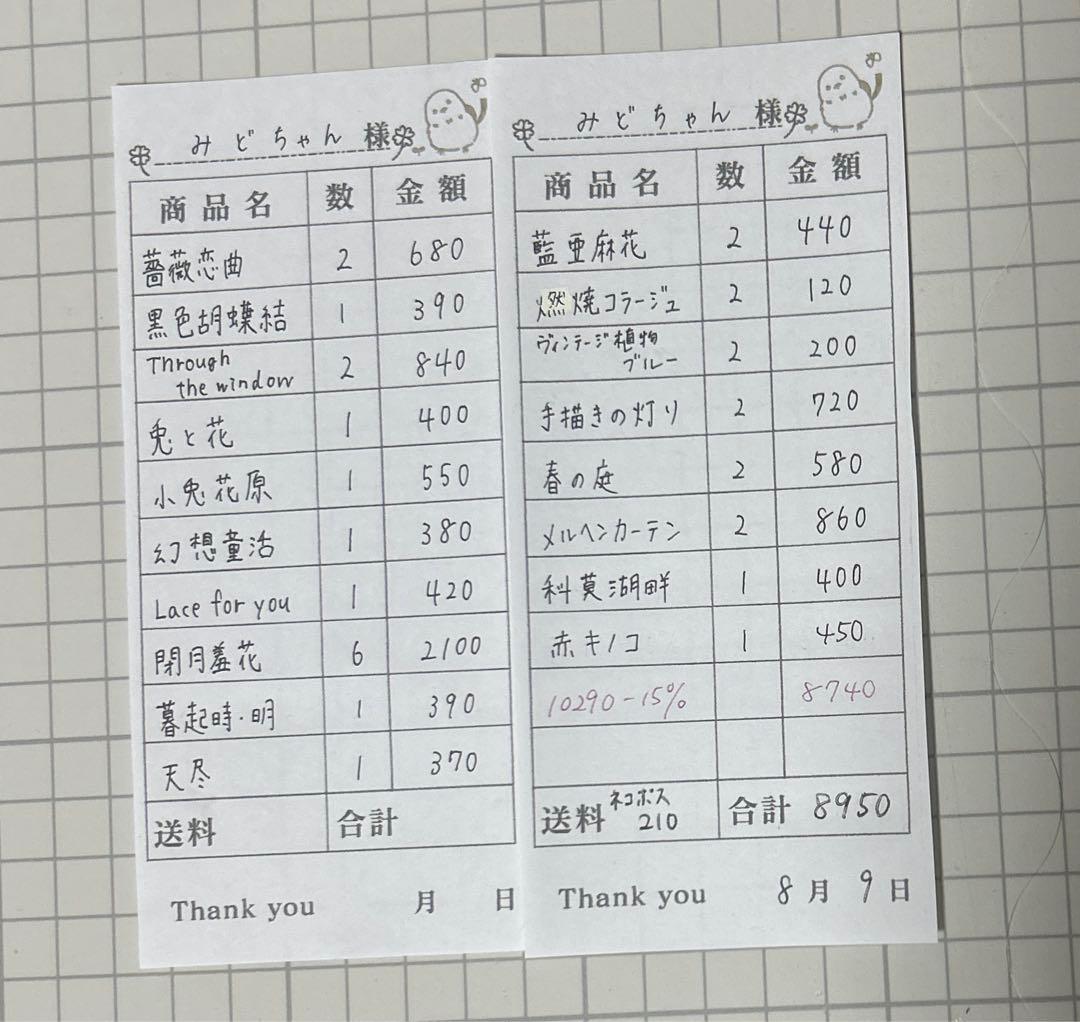 みどちゃん 様
商品名 数 金額
薔薇恋曲 2 680
黒色胡蝶結 1 390
Through
the window 2 840
兎と花 1 400
小兎花原 1 550
幻想童活 1 380
Lace for you 1 420
閉月羞花 6 2100
暮起時・明 1 390
天尽 1 370
送料 合計
Thank you 月 日
みどちゃん 様
商品名 数 金額
藍亜麻花 2 440
燃焼コラージュ 2 120
ヴィンテージ植物
ブルー 2 200
手描きの灯り 2 720
春の庭 2 580
メルヘンカーテン 2 860
科莫湖畔 1 400
赤キノコ 1 450
10290-15% 8740
送料 ネコポス
210 合計 8950
Thank you 8月 9日